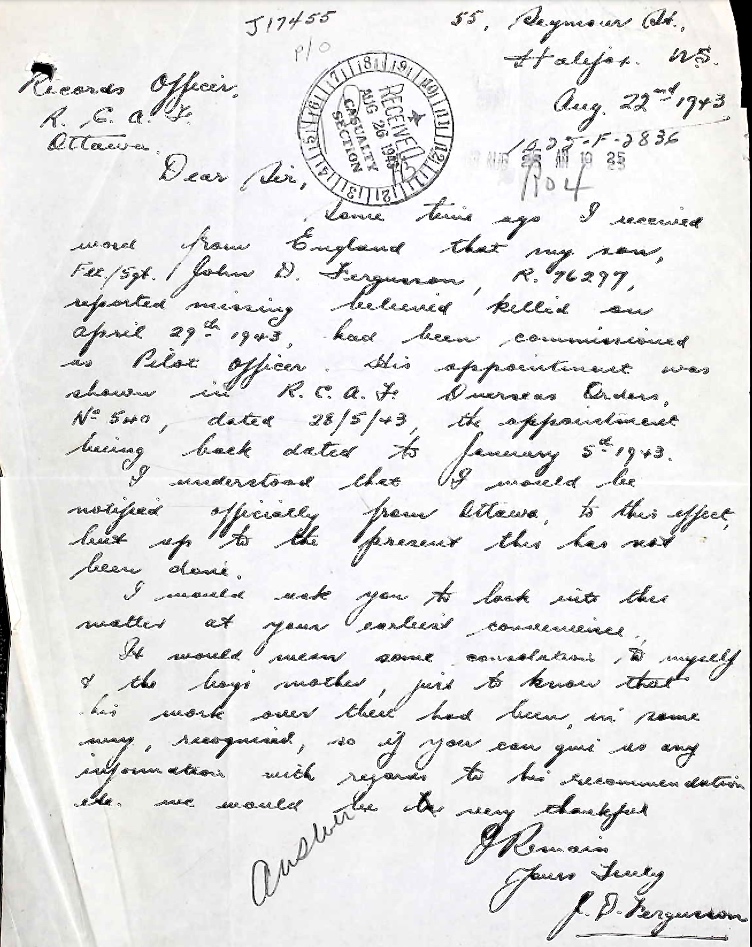 J17455
P/O
55, Seymour St.,
Halifax. N.S.
Aug. 22nd 1943
Records Officer,
R. C. A. F.
Ottawa.
RECEIVED
AUG 26 1943
CASUALTY
SECTION
AUG 25 AM 10 25
R04
Dear Sir,
Some time ago I received
word from England that my son,
Flt/Sgt. John D. Fergusson, R. 76297,
reported missing believed killed on
April 29th 1943, had been commissioned
as Pilot Officer. His appointment was
shown in R. C. A. F. Overseas Orders,
No 540, dated 28/5/43, the appointment
being back dated to January 5th 1943.
I understood that I would be
notified officially from Ottawa, to this effect,
but up to the present this has not
been done.
I would ask you to look into this
matter at your earliest convenience.
It would mean some consolation, to myself
& the boy's mother, just to know that
his work over there had been, in some
way, recognised, so if you can give us any
information with regards to his recommendation
etc. we would be very thankful
I Remain
Yours Truly
J. D. Fergusson
Answer